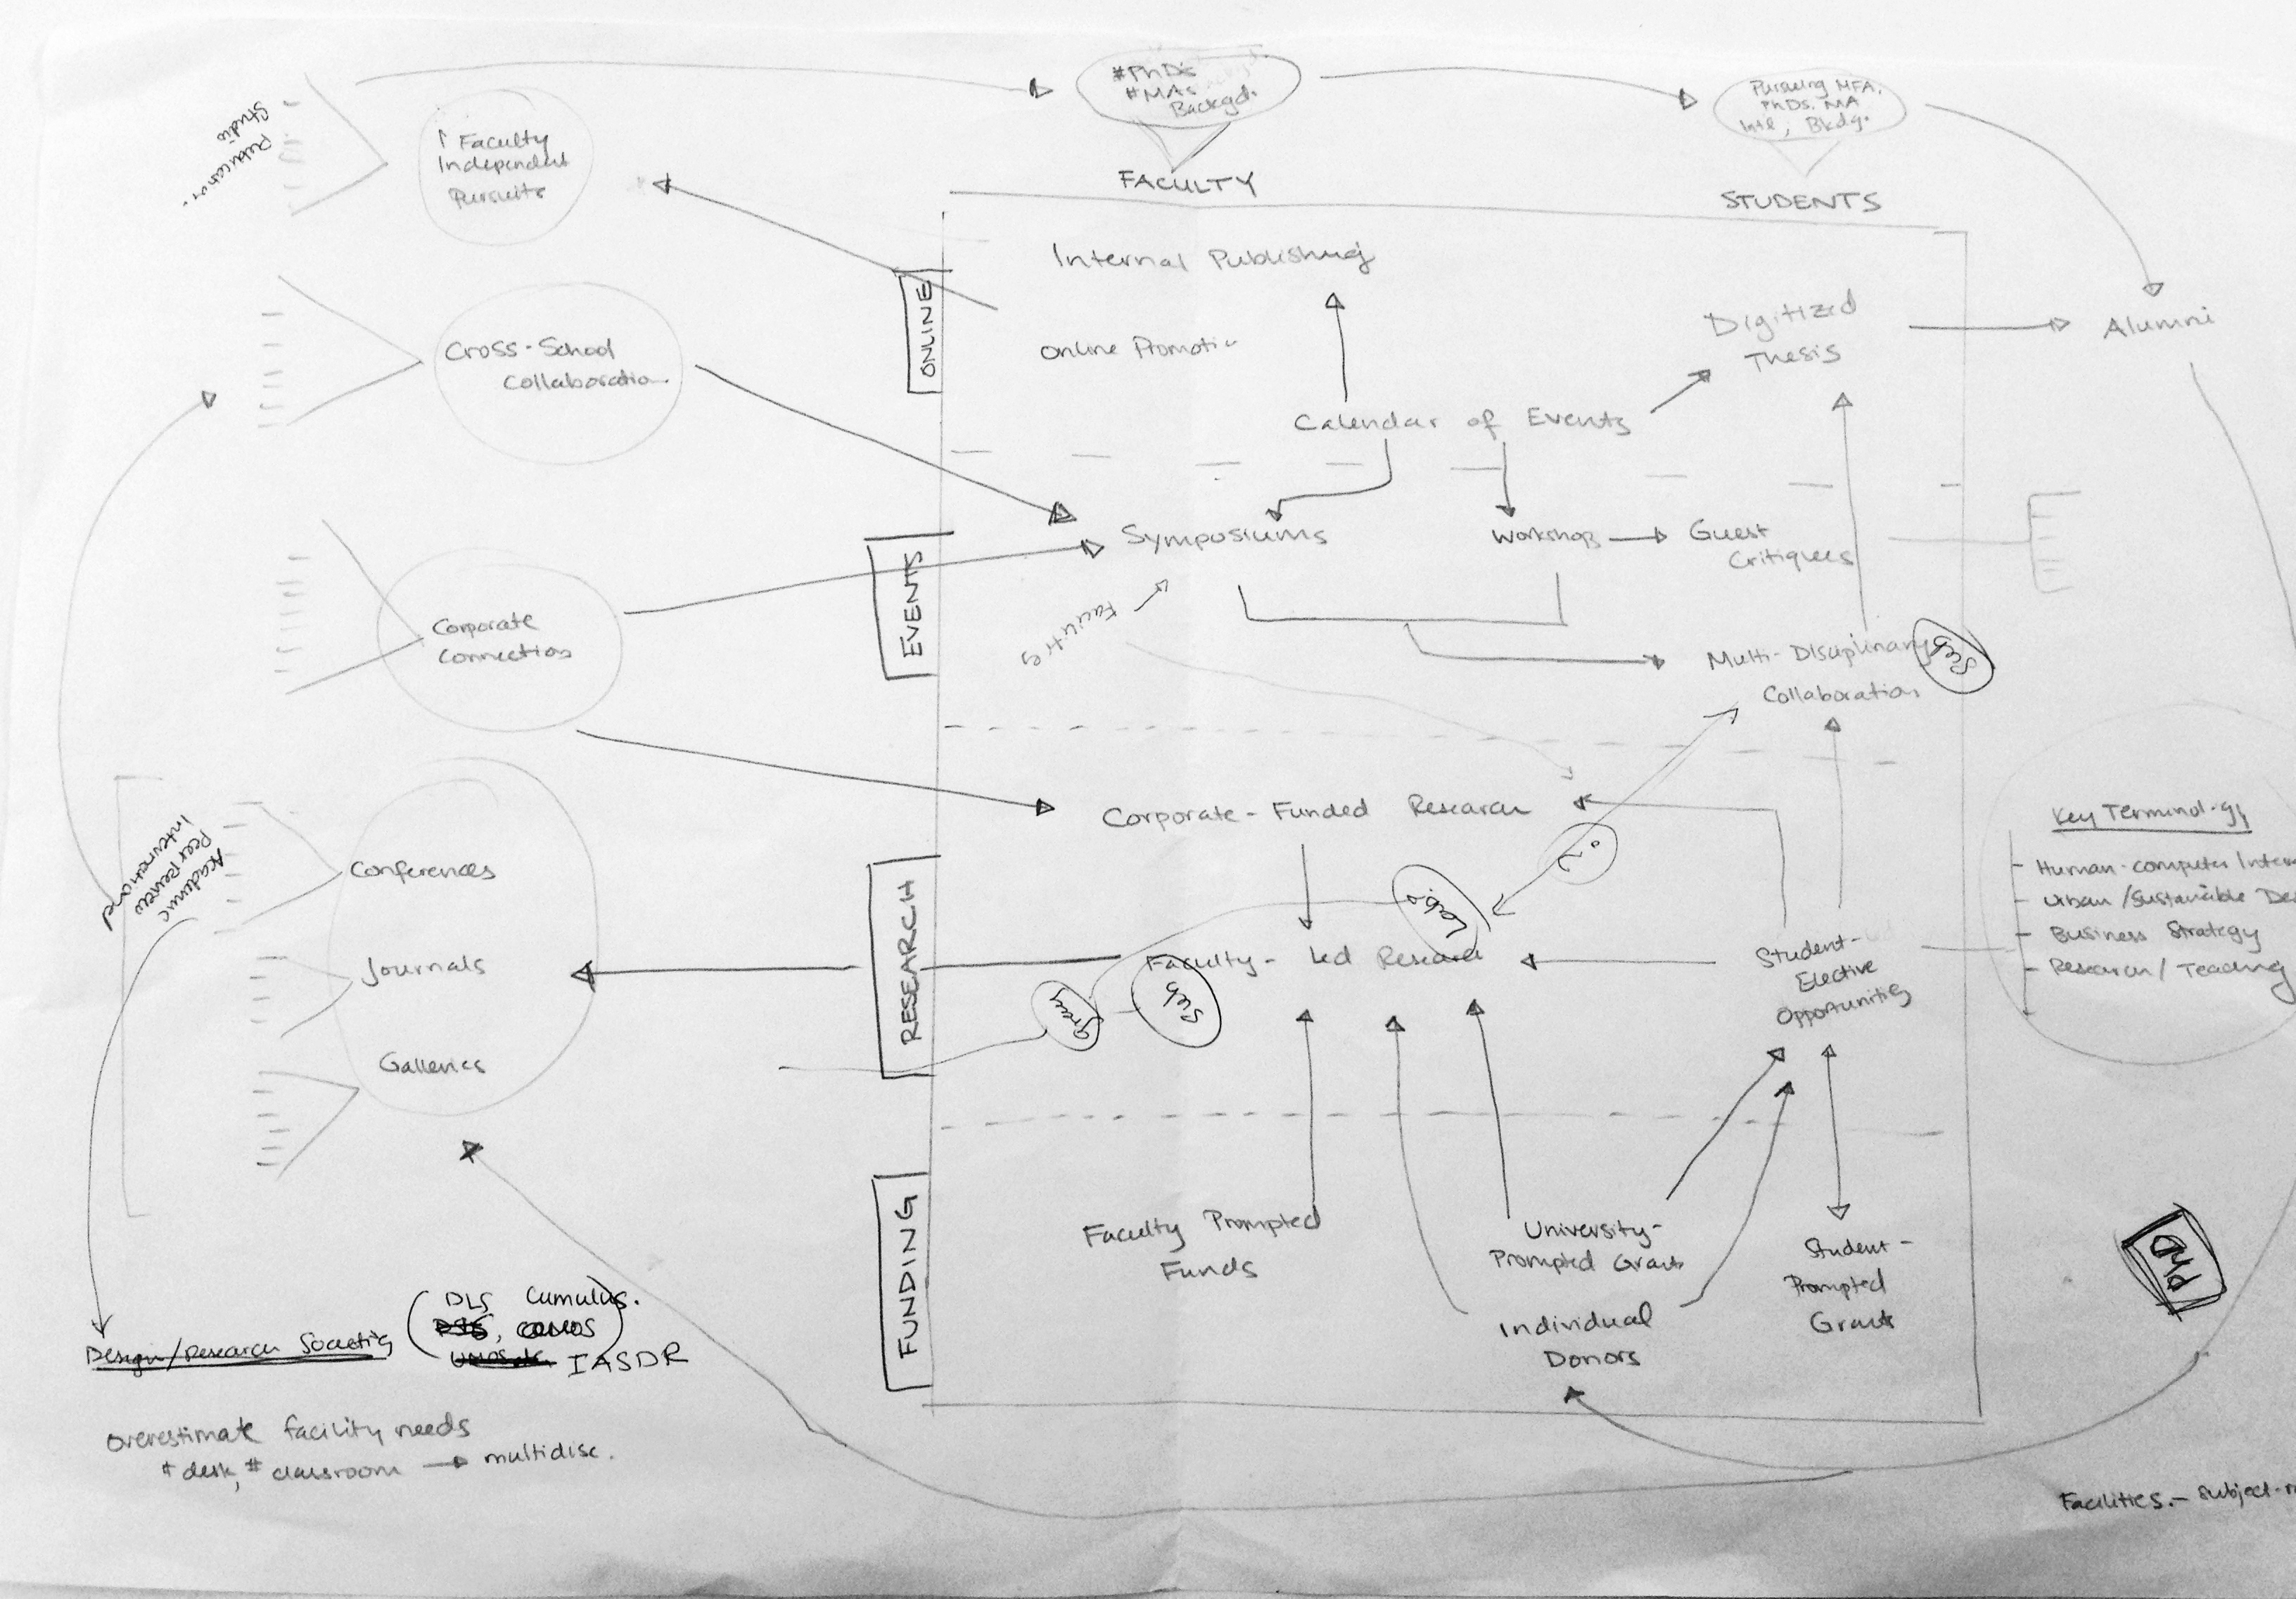 #PhDs
#MAs
Backgd.
FACULTY
Pursuing MFA,
PhDs, MA
Intl, Bkdg.
STUDENTS
Studio
↑ Faculty
Independent
Pursuits
Cross-School
Collaboration
Corporate
Connections
International
Peer Review
Academic
Conferences
Journals
Galleries
ONLINE
Internal Publishing
Online Promotion
Calendar of Events
Digitized
Thesis
Alumni
EVENTS
Symposiums
Workshops
Guest
Critiques
Facilities
Multi-Disciplinary
Collaboration
Seb
RESEARCH
Corporate-Funded Research
Faculty-led Research
Seb
Student-
Elective
Opportunities
Key Terminology
- Human-computer Inter
- Urban/Sustainable De
- Business Strategy
- Research/Teaching
FUNDING
Faculty Prompted
Funds
University-
Prompted Grants
Individual
Donors
Student-
Prompted
Grants
PHD
Design/Research Societies
Cumulus.
IASDR
overestimate facility needs
# desk, # classroom → multidisc.
Facilities.- subject-